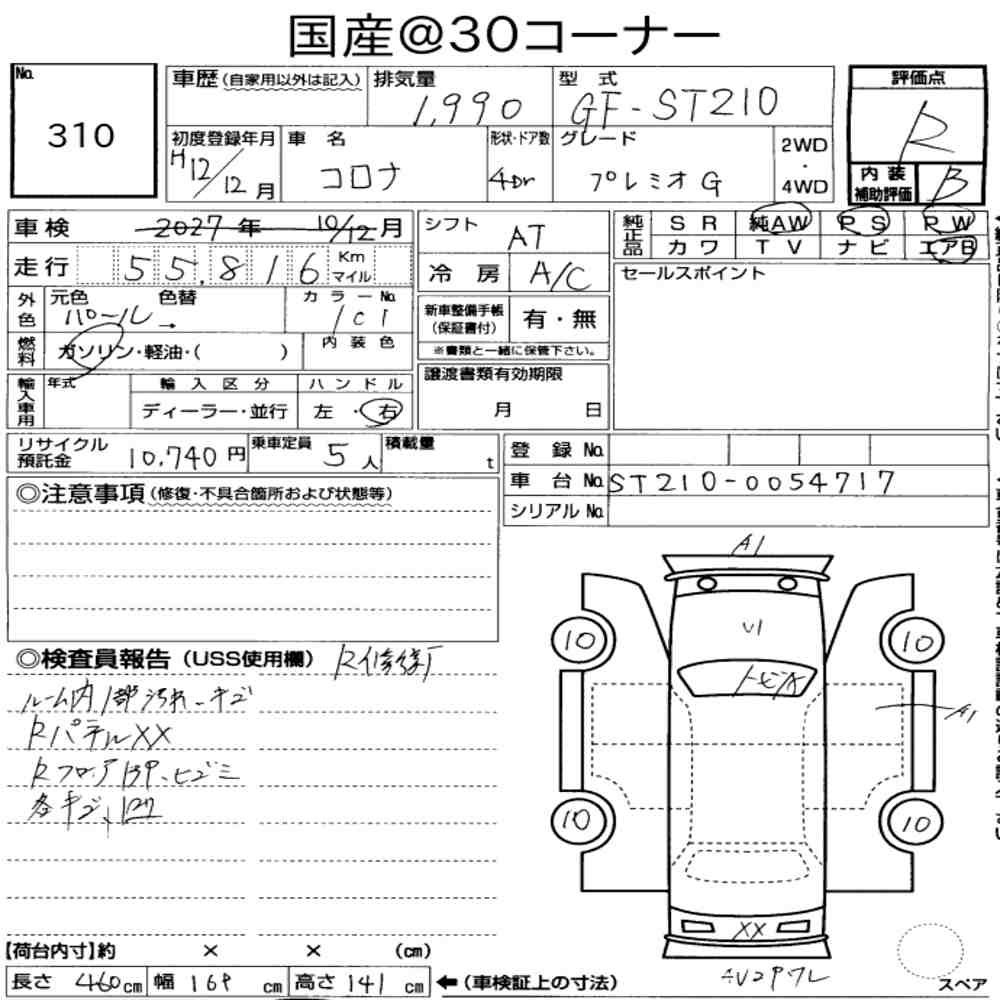 国産@30コーナー
No. 310
車歴(自家用以外は記入) 排気量 1,990 型式 GF-ST210
評価点 R
初度登録年月 H12/12月 車名 コロナ 形状・ドア数 4Dr グレード プレミオG 2WD・4WD
内装補助評価 B
車検 2027年 10/12月 シフト AT
純正品 SR 純AW PS PW
カワ TV ナビ エアB
走行 55,816 Km マイル 冷房 A/C
セールスポイント
外色 元色 パール 色替 → カラーNo. 1C1
新車整備手帳(保証書付) 有・無
※書類と一緒に保管下さい。
燃料 ガソリン・軽油・( ) 内装色
輸入車用 年式 輸入区分 ディーラー・並行 ハンドル 左・右
譲渡書類有効期限 月 日
リサイクル預託金 10,740円 乗車定員 5人 積載量 t
登録No.
車台No. ST210-0054717
シリアルNo.
◎注意事項(修復・不具合箇所および状態等)
◎検査員報告(USS使用欄) R修繕
ルーム内1部汚れ、キズ
RパネルXX
Rフロア
各キズ、凹
A1
U1
トビA
10 10
A1
10 10
XX
【荷台内寸】約 × × (cm)
長さ 460cm 幅 169cm 高さ 141cm ←(車検証上の寸法)
スペア